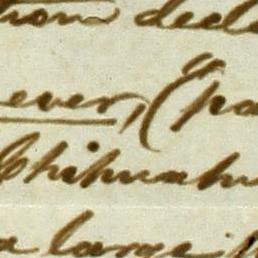 from decl
ever, (pa
Chihuahu
a large